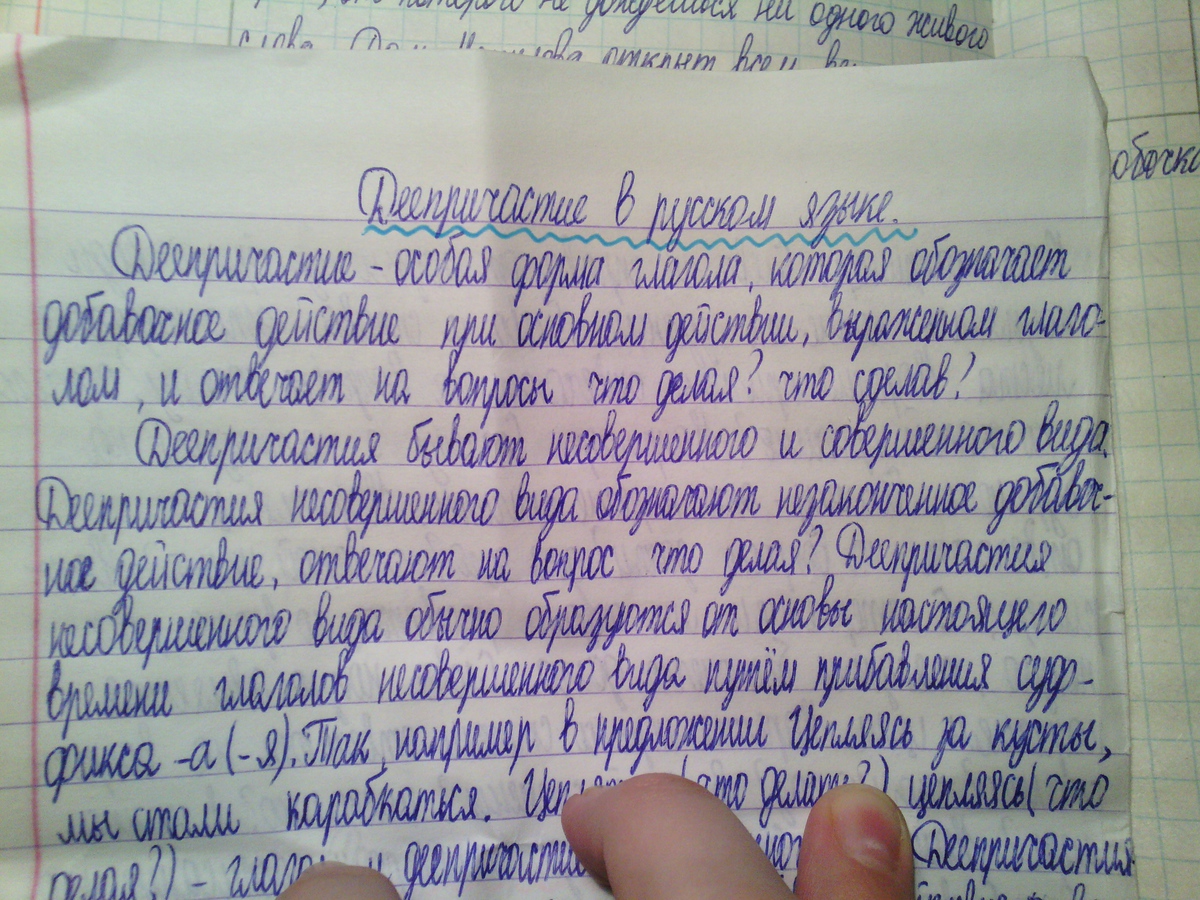 которого не дождёшься ни одного живого
слова.
обочка
Деепричастие в русском языке.
Деепричастие - особая форма глагола, которая обозначает
добавочное действие при основном действии, выраженном глаго-
лом, и отвечает на вопросы что делая? что сделав?
Деепричастия бывают несовершенного и совершенного вида.
Деепричастия несовершенного вида обозначают незаконченное добавоч-
ное действие, отвечают на вопрос что делая? Деепричастия
несовершенного вида обычно образуются от основы настоящего
времени глаголов несовершенного вида путём прибавления суф-
фикса -а (-я). Так, например в предложении Цепляясь за кусты,
мы стали карабкаться. что делать?) цепляясь (что
делая?) - и Деепричастия